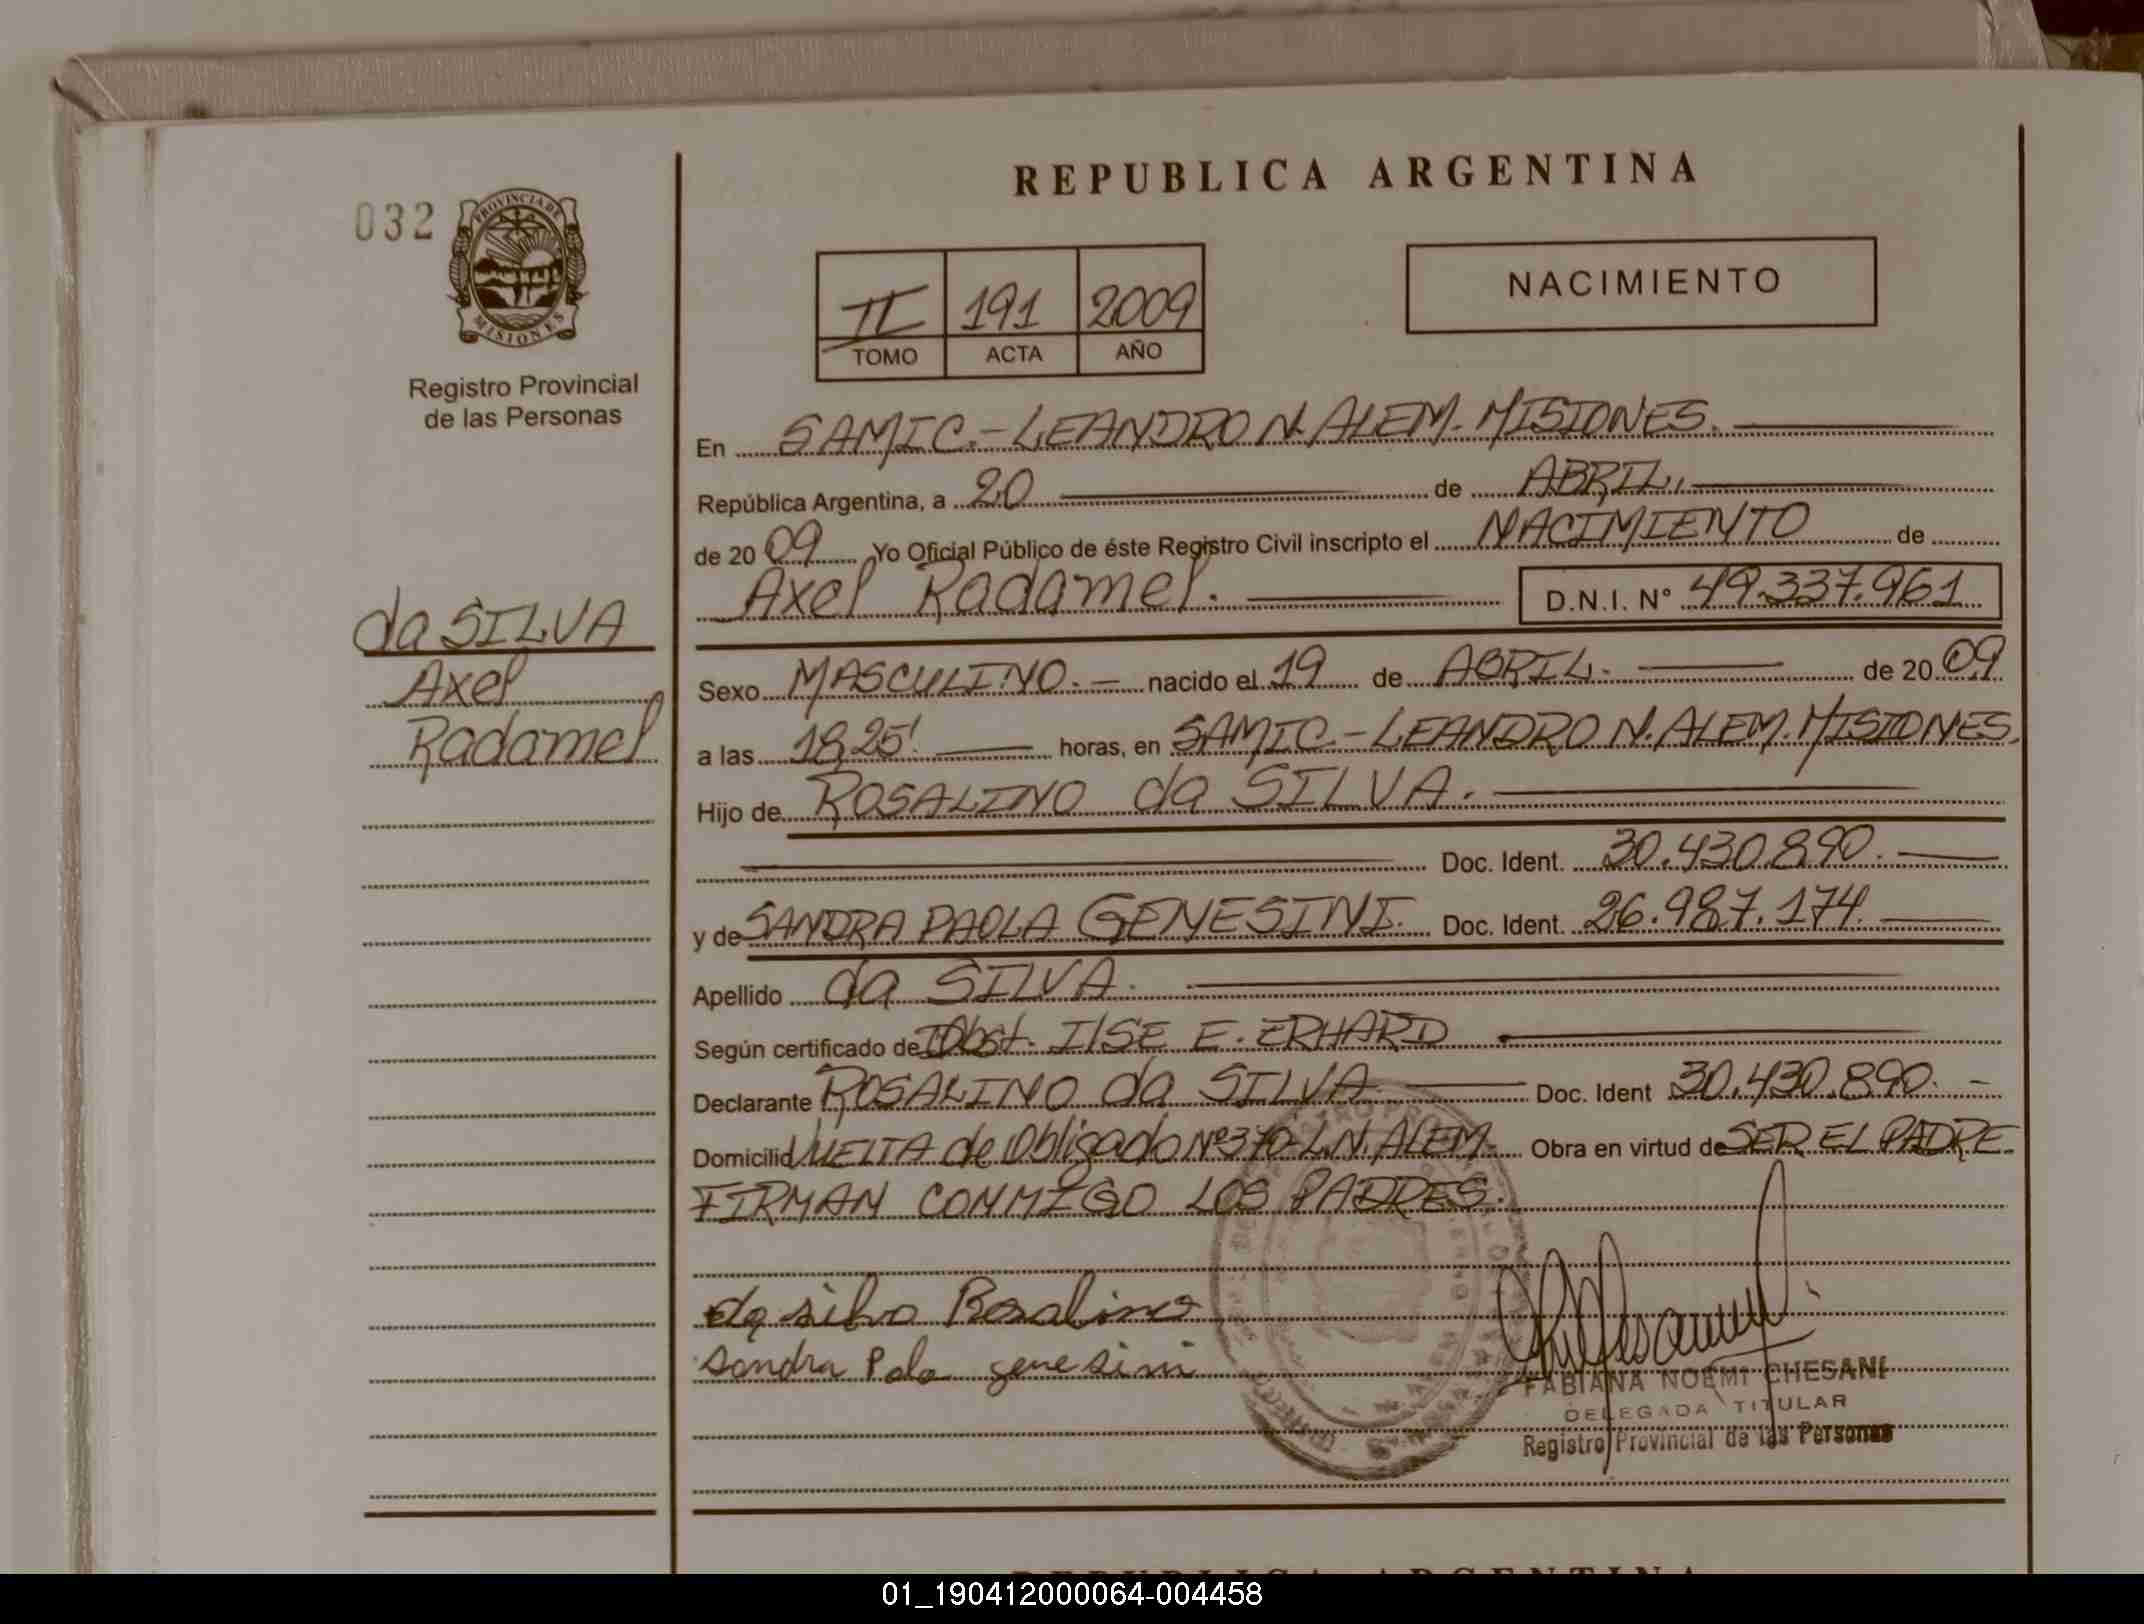 REPUBLICA ARGENTINA
032
PROVINCIA DE
MISIONES
Registro Provincial
de las Personas
II 191 2009
TOMO ACTA AÑO
NACIMIENTO
En SAMIC.-LEANDRO N. ALEM-MISIONES.
República Argentina, a 20 de ABRIL.
de 2009 Yo Oficial Público de éste Registro Civil inscripto el NACIMIENTO de
Axel Radamel. D.N.I. Nº 49.337.961
da SILVA
Axel
Radamel
Sexo MASCULINO.- nacido el 19 de ABRIL. de 2009
a las 18,25' horas, en SAMIC.-LEANDRO N. ALEM. MISIONES.
Hijo de ROSALINO da SILVA.
Doc. Ident. 30.430.890.
y de SANDRA PAOLA GENESINI. Doc. Ident. 26.987.174.
Apellido da SILVA.
Según certificado de Obst. IlSE E. ERHARD
Declarante ROSALINO da SILVA Doc. Ident 30.430.890. -
Domicilio VUELTA de Obligado Nº370-L.N. ALEM- Obra en virtud de SER EL PADRE.
FIRMAN CONMIGO LOS PADRES.
da silva Rosalino
Sandra Pola genesini
FABIANA NOEMI CHESANI
DELEGADA TITULAR
Registro Provincial de las Personas
REPUBLICA ARGENTINA
01_190412000064-004458